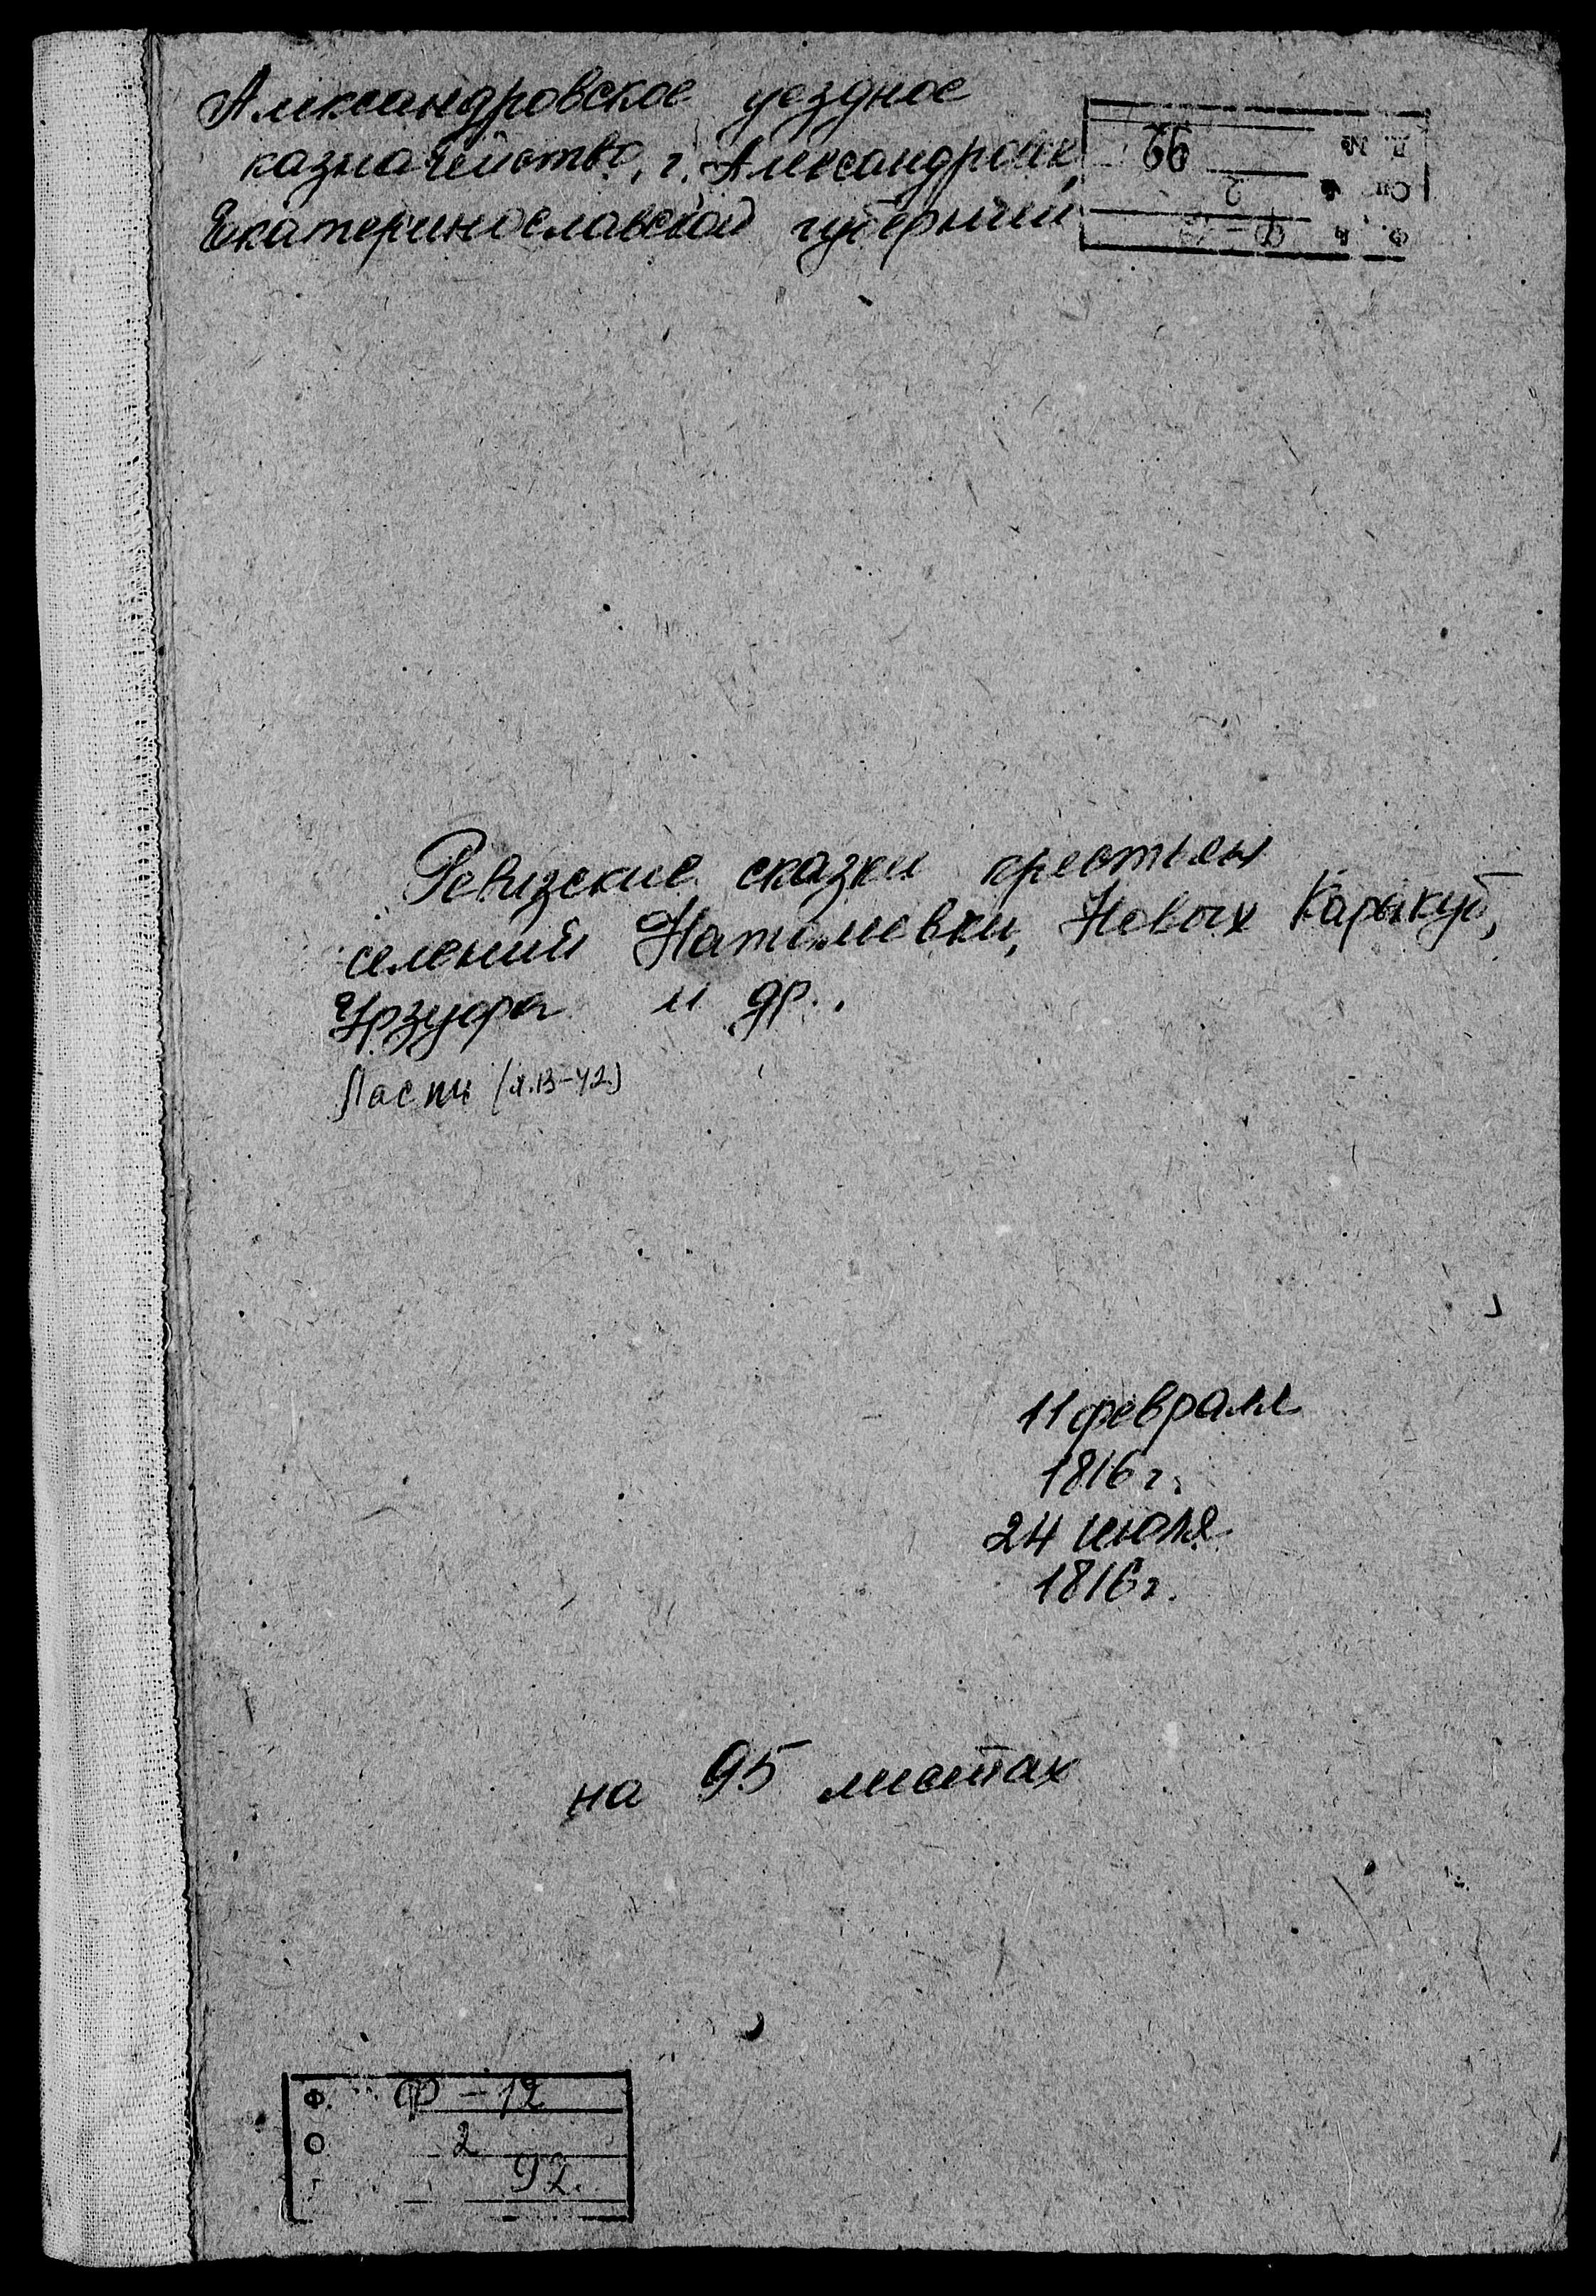 Александровское уездное
казначейство, г. Александровск,
Екатеринославской губернии
92
2
Ревизские сказки крестьян
селений Новых Каракуб,
Урзуфа и др.
Ласпи (л.13-42)
11 февраля
1816 г.
24 июля
1816 г.
на 95 листах
Ф. Ф-12
О 2
92.